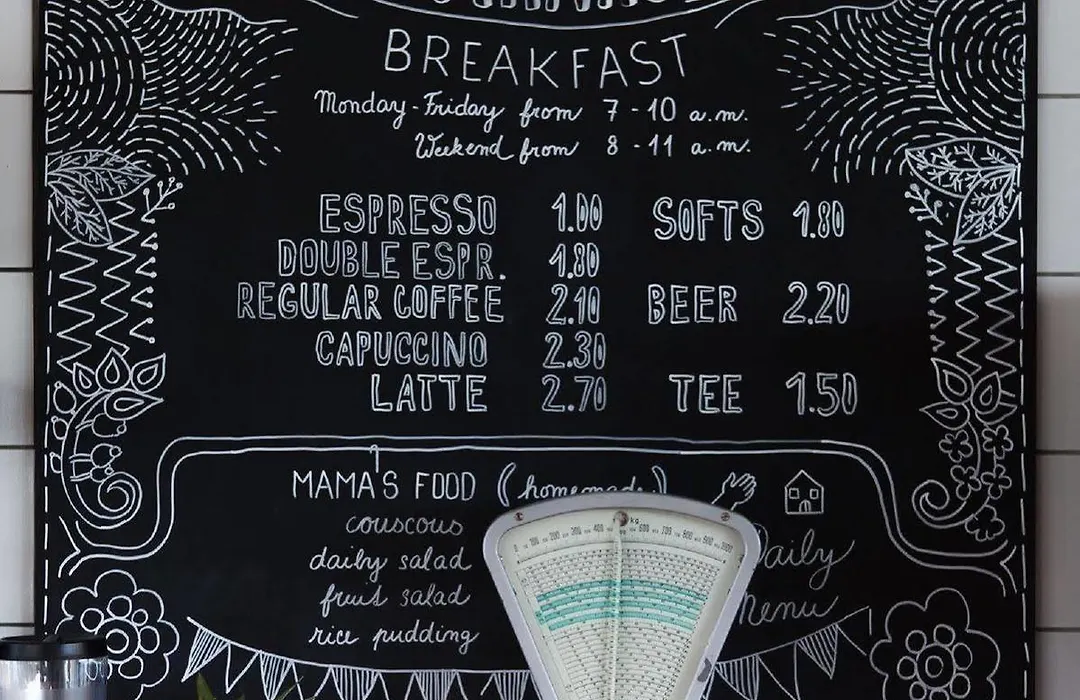 BREAKFAST
Monday-Friday from 7 - 10 a.m.
Weekend from 8 - 11 a.m.
ESPRESSO 1.00 SOFTS 1.80
DOUBLE ESPR. 1.80
REGULAR COFFEE 2.10 BEER 2.20
CAPUCCINO 2.30
LATTE 2.70 TEE 1.50
MAMA'S FOOD (homemade)
couscous
daily salad Daily
fruit salad Menu
rice pudding
kg